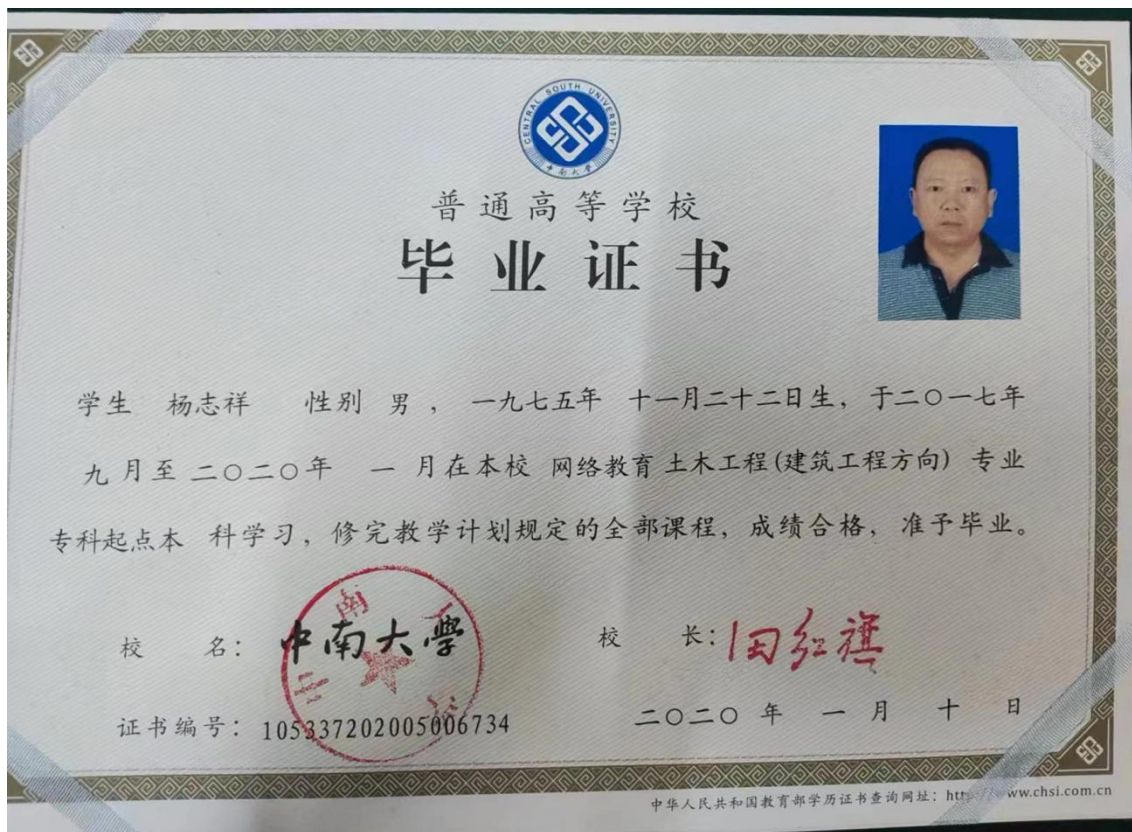 CENTRAL SOUTH UNIVERSITY
中南大学
普通高等学校
毕业证书
学生 杨志祥 性别 男 ， 一九七五年 十一月二十二日生，于二〇一七年
九 月至 二〇二〇年 一 月在本校 网络教育 土木工程(建筑工程方向) 专业
专科起点本 科学习，修完教学计划规定的全部课程，成绩合格，准予毕业。
校 名： 中南大學 校 长： 田红旗
证书编号：105337202005006734 二〇二〇 年 一 月 十 日
中华人民共和国教育部学历证书查询网址：http://www.chsi.com.cn